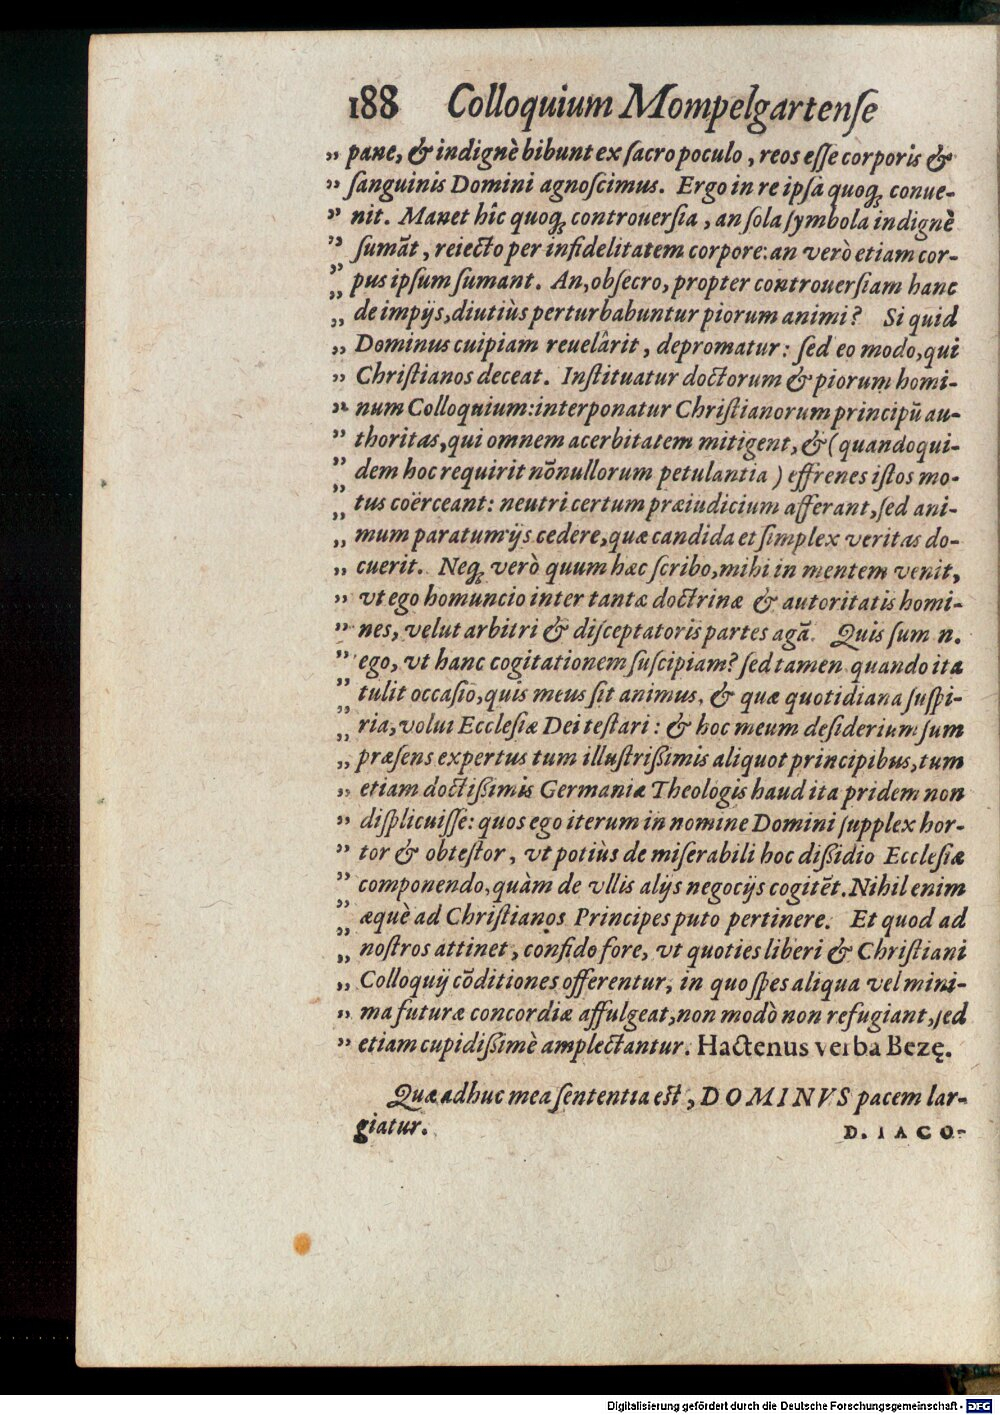 188 Colloquium Mompelgartenſe
„ pane, & indignè bibunt ex ſacro poculo, reos eſſe corporis &
„ ſanguinis Domini agnoſcimus. Ergo in re ipſa quoq; conue-
„ nit. Manet hîc quoq; controuerſia, an ſola ſymbola indignè
„ ſumāt, reiecto per infidelitatem corpore: an verò etiam cor-
„ pus ipſum ſumant. An, obſecro, propter controuerſiam hanc
„ de impijs, diutiùs perturbabuntur piorum animi? Si quid
„ Dominus cuipiam reuelârit, depromatur: ſed eo modo, qui
„ Chriſtianos deceat. Inſtituatur doctorum & piorum homi-
„ num Colloquium: interponatur Chriſtianorum principū au-
„ thoritas, qui omnem acerbitatem mitigent, & (quandoqui-
„ dem hoc requirit nōnullorum petulantia) effrenes iſtos mo-
„ tus coërceant: neutri certum præiudicium afferant, ſed ani-
„ mum paratum ijs cedere, quæ candida et ſimplex veritas do-
„ cuerit. Neq; verò quum hæc ſcribo, mihi in mentem venit,
„ vt ego homuncio inter tantæ doctrinæ & autoritatis homi-
„ nes, velut arbitri & diſceptatoris partes agā. Quis ſum n.
„ ego, vt hanc cogitationem ſuſcipiam? ſed tamen quando ita
„ tulit occaſio, quis meus ſit animus, & quæ quotidiana ſuſpi-
„ ria, volui Eccleſiæ Dei teſtari: & hoc meum deſiderium ſum
„ præſens expertus tum illuſtriſſimis aliquot principibus, tum
„ etiam doctiſſimis Germaniæ Theologis haud ita pridem non
„ diſplicuiſſe: quos ego iterum in nomine Domini ſupplex hor-
„ tor & obteſtor, vt potiùs de miſerabili hoc diſſidio Eccleſiæ
„ componendo, quàm de vllis alijs negocijs cogitēt. Nihil enim
„ æquè ad Chriſtianos Principes puto pertinere. Et quod ad
„ noſtros attinet, confido fore, vt quoties liberi & Chriſtiani
„ Colloquij cōditiones offerentur, in quo ſpes aliqua vel mini-
„ ma futuræ concordiæ affulgeat, non modò non refugiant, ſed
„ etiam cupidiſſimè amplectantur. Hactenus verba Bezę.
Quæ adhuc mea ſententia eſt, DOMINVS pacem lar-
giatur.
D. IACO-
Digitalisierung gefördert durch die Deutsche Forschungsgemeinschaft - DFG